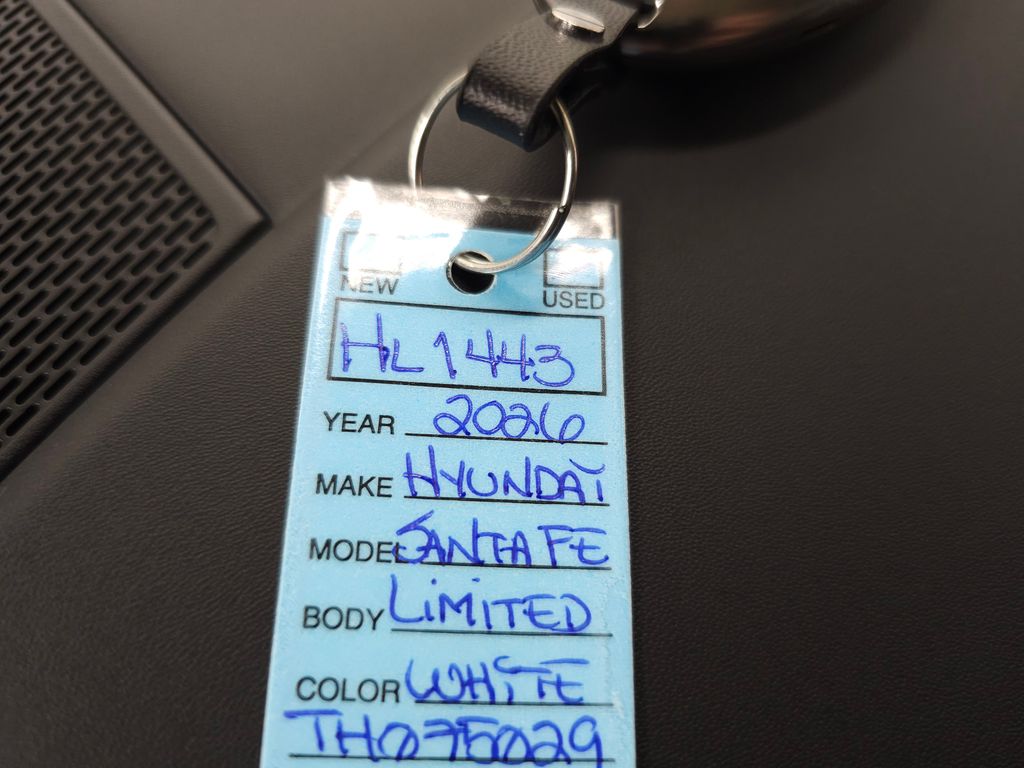 NEW USED
HL1443
YEAR 2026
MAKE HYUNDAI
MODEL SANTA FE
BODY LIMITED
COLOR WHITE
TH075029